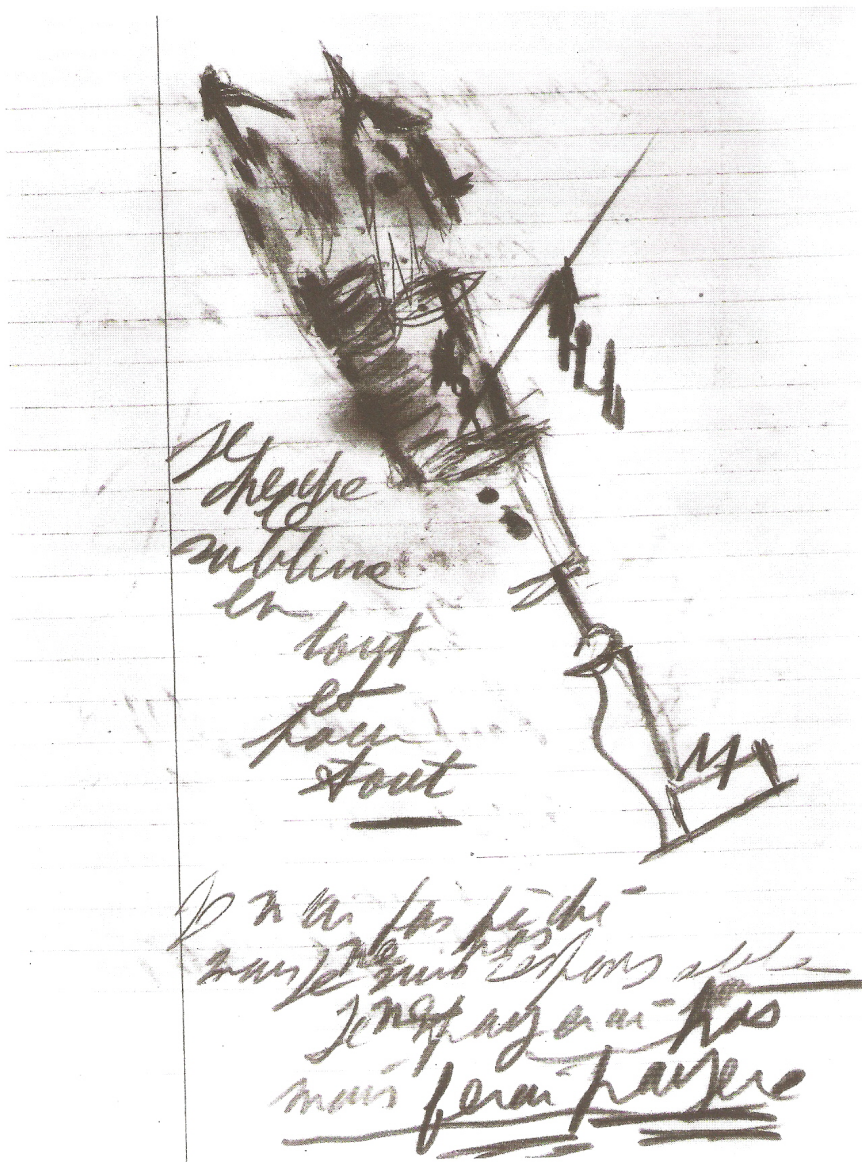 je
cherche
le
sublime
en
tout
et
pour
tout
Je n ai pas péché
mais je ne suis pas responsable
Je ne payerai pas
mais ferai payere